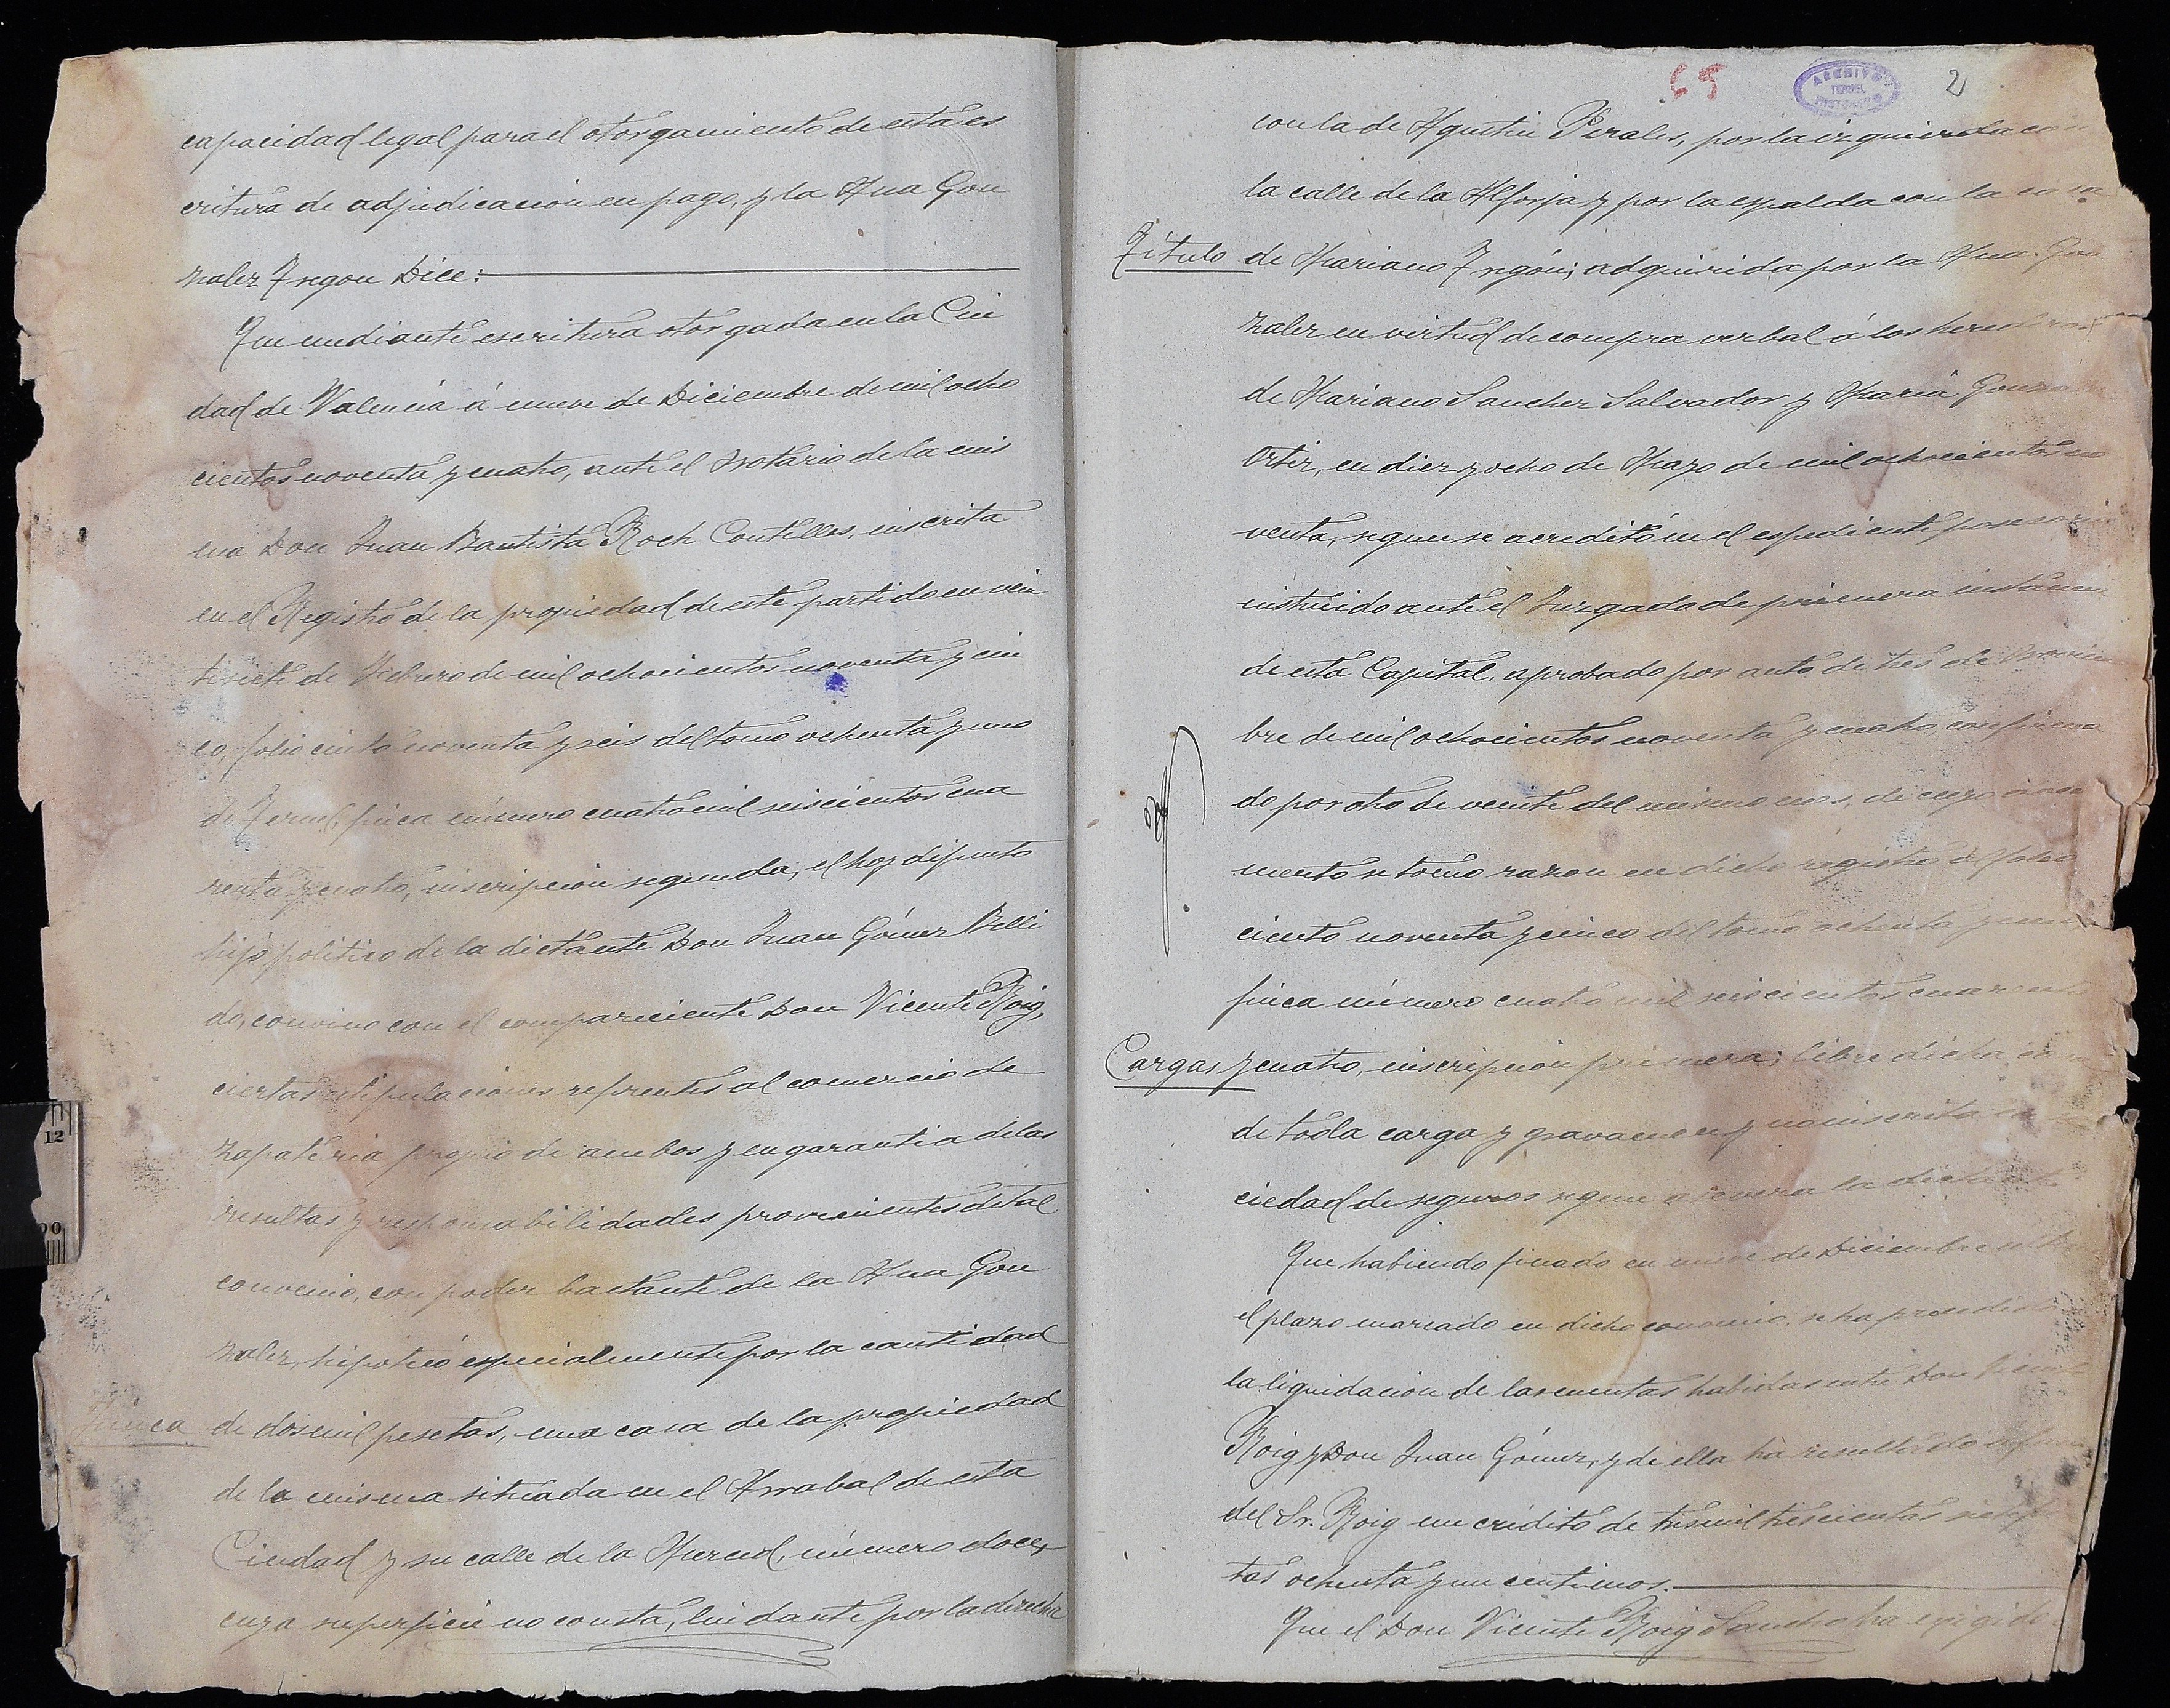 capacidad legal para el otorgamiento de esta es
critura de adjudicacion en pago, y la Ana Gon
zalez Yngon Dice:
Que mediante escritura otorgada en la Ciu
dad de Valencia á nueve de Diciembre de mil ocho
cientos noventa y cuatro, ante el Notario de la mis
ma Don Juan Bautista Roch Contelles, inscrita
en el Registro de la propiedad de este partido en vein
tisiete de Febrero de mil ochocientos noventa y cin
co, folio ciento noventa y seis del tomo ochenta y uno
de Teruel, finca número cuatro mil seiscientos cua
renta y cuatro, inscripcion segunda, el hoy difunto
hijo politico de la dictante Don Juan Gómez Belli
do, convino con el compareciente Don Vicente Roig,
ciertas estipulaciones referentes al comercio de
zapateria propio de ambos y en garantia de las
resultas y responsabilidades provenientes de tal
convenio, con poder bastante de la Ana Gon
zalez, hipotecó especialmente por la cantidad
Finca de dos mil pesetas, una casa de la propiedad
de la misma situada en el Arrabal de esta
Ciudad y su calle de la Merced, número doce,
cuya superficie no consta, lindante por la derecha
65
ARCHIVO
TERUEL
HISTORICO
2
con la de Agustin Perales, por la izquierda con
la calle de la Alforja y por la espalda con la casa
Título de Mariano Yngón; adquirida por la Ana Gon
zalez en virtud de compra verbal á los herederos
de Mariano Sanchez Salvador y Maria Gonzalez
Ortiz, en diez y ocho de Mayo de mil ochocientos no
venta, segun se acreditó en el espediente posesorio
instruido ante el Juzgado de primera instancia
de esta Capital, aprobado por auto de tres de Noviem
bre de mil ochocientos noventa y cuatro, confirma
do por otro de veinte del mismo mes, de cuyo docu
mento se tomo razon en dicho registro al folio
ciento noventa y cinco del tomo ochenta y uno
finca número cuatro mil seiscientos cuarenta
Cargas y cuatro, inscripcion primera; libre dicha casa
de toda carga y gravamen y no inscrita en
ciedad de seguros segun asevera la dictante
Que habiendo finado en nueve de Diciembre ultimo
el plazo marcado en dicho convenio, se ha practicado
la liquidacion de las cuentas habidas entre Don Vicente
Roig y Don Juan Gómez, y de ella ha resultado á favor
del Sr. Roig un crédito de tres mil trescientas siete pese
tas ochenta y un centimos.
Que el Don Vicente Roig Sancho ha exigido